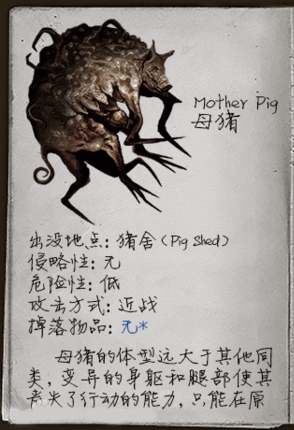 Mother Pig
母猪
出没地点: 猪舍 (Pig Shed)
侵略性: 无
危险性: 低
攻击方式: 近战
掉落物品: 无*
母猪的体型远大于其他同
类, 变异的身躯和腿部使其
丧失了行动的能力, 只能在原